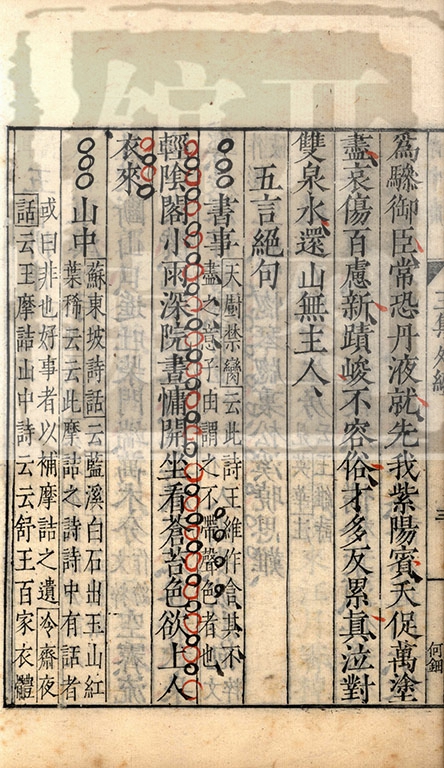 為驂御臣常恐丹液就先我紫陽賓夭促萬塗
盡哀傷百慮新蹟峻不容俗才多反累真泣對
雙泉水還山無主人
五言絕句
書事
天廚禁臠云此詩王維作含其不
盡之意子由謂之不帶聲色者也
輕陰閣小雨深院晝慵開坐看蒼苔色欲上人
衣來
山中
蘇東坡詩話云藍溪白石出玉山紅
葉稀云云此摩詰之詩詩中有話者
或曰非也好事者以補摩詰之遺冷齋夜
話云王摩詰山中詩云云舒王百家衣體